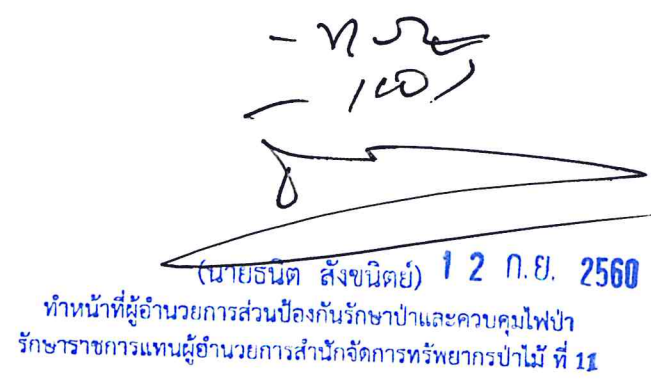 - ทราบ
(นายธนิต สังขนิตย์) 12 ก.ย. 2560
ทำหน้าที่ผู้อำนวยการส่วนป้องกันรักษาป่าและควบคุมไฟป่า
รักษาราชการแทนผู้อำนวยการสำนักจัดการทรัพยากรป่าไม้ ที่ 11